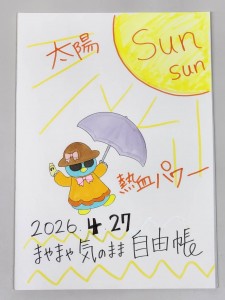 太陽
Sun
sun
熱血パワー
2026.4.27
まやまや気のまま自由帳